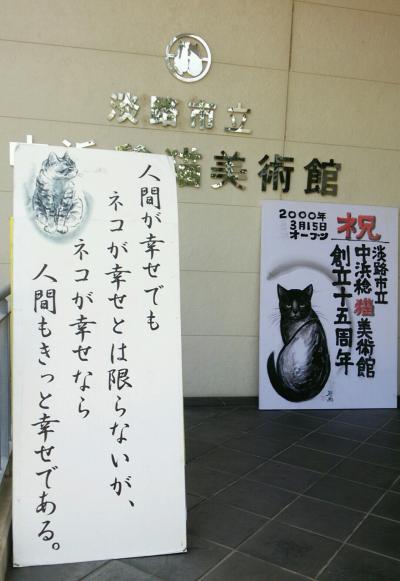 淡路市立
中浜稔猫美術館
人間が幸せでも
ネコが幸せとは限らないが、
ネコが幸せなら
人間もきっと幸せである。
2000年
3月15日
オープン
祝
淡路市立
中浜稔猫美術館
創立十五周年